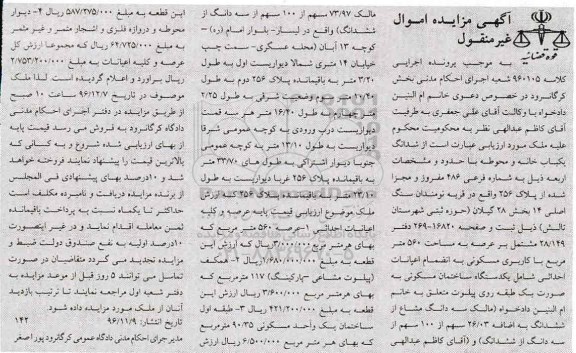 آگهی مزایده اموال
غیرمنقول
قوه قضائیه
به موجب پرونده اجرایی
کلاسه ۹۶۰۱۰۵ شعبه اجرای احکام مدنی بخش
کرگانرود در خصوص دعوی خانم ام البنین
دادخواه با وکالت آقای علی جعفری به طرفیت
آقای کاظم عبدالهی نظر به محکومیت محکوم
علیه ملک مورد ارزیابی عبارت است از ششدانگ
یکباب خانه و محوطه با حدود و مشخصات
اربعه ذیل به شماره فرعی ۴۸۶ مفروز و مجزا
شده از پلاک ۲۵۶ واقع در قریه نومندان سنگ
اصلی ۱۴ بخش ۲۸ گیلان (حوزه ثبتی شهرستان
تالش) ذیل ثبت و صفحه ۱۶۸۲۰-۲۶۹ دفتر
۲۸/۱۴۹ مشتمل بر عرصه به مساحت ۵۶۰ متر
مربع با کاربری مسکونی به انضمام اعیانات
احداثی شامل یکدستگاه ساختمان مسکونی به
صورت یک طبقه روی پیلوت متعلق به خانم
ام البنین دادخواه (مالک سه دانگ مشاع از
ششدانگ به اضافه ۲۶/۰۳ سهم از ۱۰۰ سهم از
سه دانگ از ششدانگ) و (آقای کاظم عبدالهی
مالک ۷۳/۹۷ سهم از ۱۰۰ سهم از سه دانگ از
ششدانگ) واقع در لیسار- بلوار امام (ره) –
کوچه ۱۳ آبان (محله عسگری- سمت چپ
خیابان ۱۴ متری شمالا دیواریست اول به طول
۳/۲۰ متر به باقیمانده پلاک ۲۵۶ دوم به طول
۱۰/۲۰ متر سوم وضعیت شرقی به طول ۲/۲۵
متر چهارم به طول ۱۶/۴۰ متر هر سه قسمت
دیواریست درب ورودی به کوچه عمومی شرقا
دیواریست به طول ۱۳/۱۰ متر به کوچه عمومی
جنوبا دیوار اشتراکی به طول های ۳۳/۷۰ متر
به باقیمانده پلاک ۲۵۶ غربا دیواریست به طول
۲۳/۱۰ متر به باقیمانده پلاک ۲۵۶ کاربرد ارزش
ملک موضوع ارزیابی قیمت پایه عرصه و کلیه
اعیانات احداثی ۱-عرصه ۵۶۰ متر مربع که
بهای هر متر مربع ۳/۰۰۰/۰۰۰ ریال که ارزش این
قطعه به مبلغ ۱/۶۸۰/۰۰۰/۰۰۰ ریال ۲- همکف
(پیلوت مشاعی -پارکینگ) ۱۱۷ مترمربع که
بهای هرمتر مربع ۳/۶۰۰/۰۰۰ ریال ارزش این
قطعه به مبلغ ۴۲۱/۲۰۰/۰۰۰ ریال ۳- طبقه اول
ساختمان یک واحد مسکونی ۹۰/۳۵ مترمربع
که بهای هر متر مربع ۶/۵۰۰/۰۰۰ ریال ارزش
این قطعه به مبلغ ۵۸۷/۲۷۵/۰۰۰ ریال ۴- دیوار
محوطه و دروازه فلزی و اشجار مثمر و غیر مثمر
به مبلغ ۶۴/۷۲۵/۰۰۰ ریال که مجموعا ارزش کل
عرصه و کلیه اعیانات به مبلغ ۲/۷۵۳/۲۰۰/۰۰۰
ریال برآورد و اعلام گردیده است لذا ملک
موصوف در تاریخ ۹۶/۱۲/۷ ساعت ۱۰ صبح
از طریق مزایده در دفتر اجرای احکام مدنی
دادگاه کرگانرود به فروش می رسد قیمت پایه
از بهای ارزیابی شده شروع و به کسانی که
بالاترین قیمت را پیشنهاد نمایند فروخته خواهد
شد و ۱۰درصد بهای پیشنهادی فی المجلس
از برنده مزایده دریافت و نامبرده مکلف است
حداکثر تا یکماه نسبت به پرداخت باقیمانده
ثمن معامله اقدام نماید و در غیر اینصورت
۱۰درصد اولیه به نفع صندوق دولت ضبط و
مزایده تجدید می گردد متقاضیان در صورت
تمایل می توانند ۵ روز قبل از موعد مزایده به
دفتر شعبه اول مراجعه نمایند تا ترتیب بازدید
آنان از ملک مورد مزایده داده شود.
تاریخ انتشار: ۹۶/۱۱/۹ ۱۴۲
مدیر اجرای احکام مدنی دادگاه عمومی کرگانرود پوراصغر